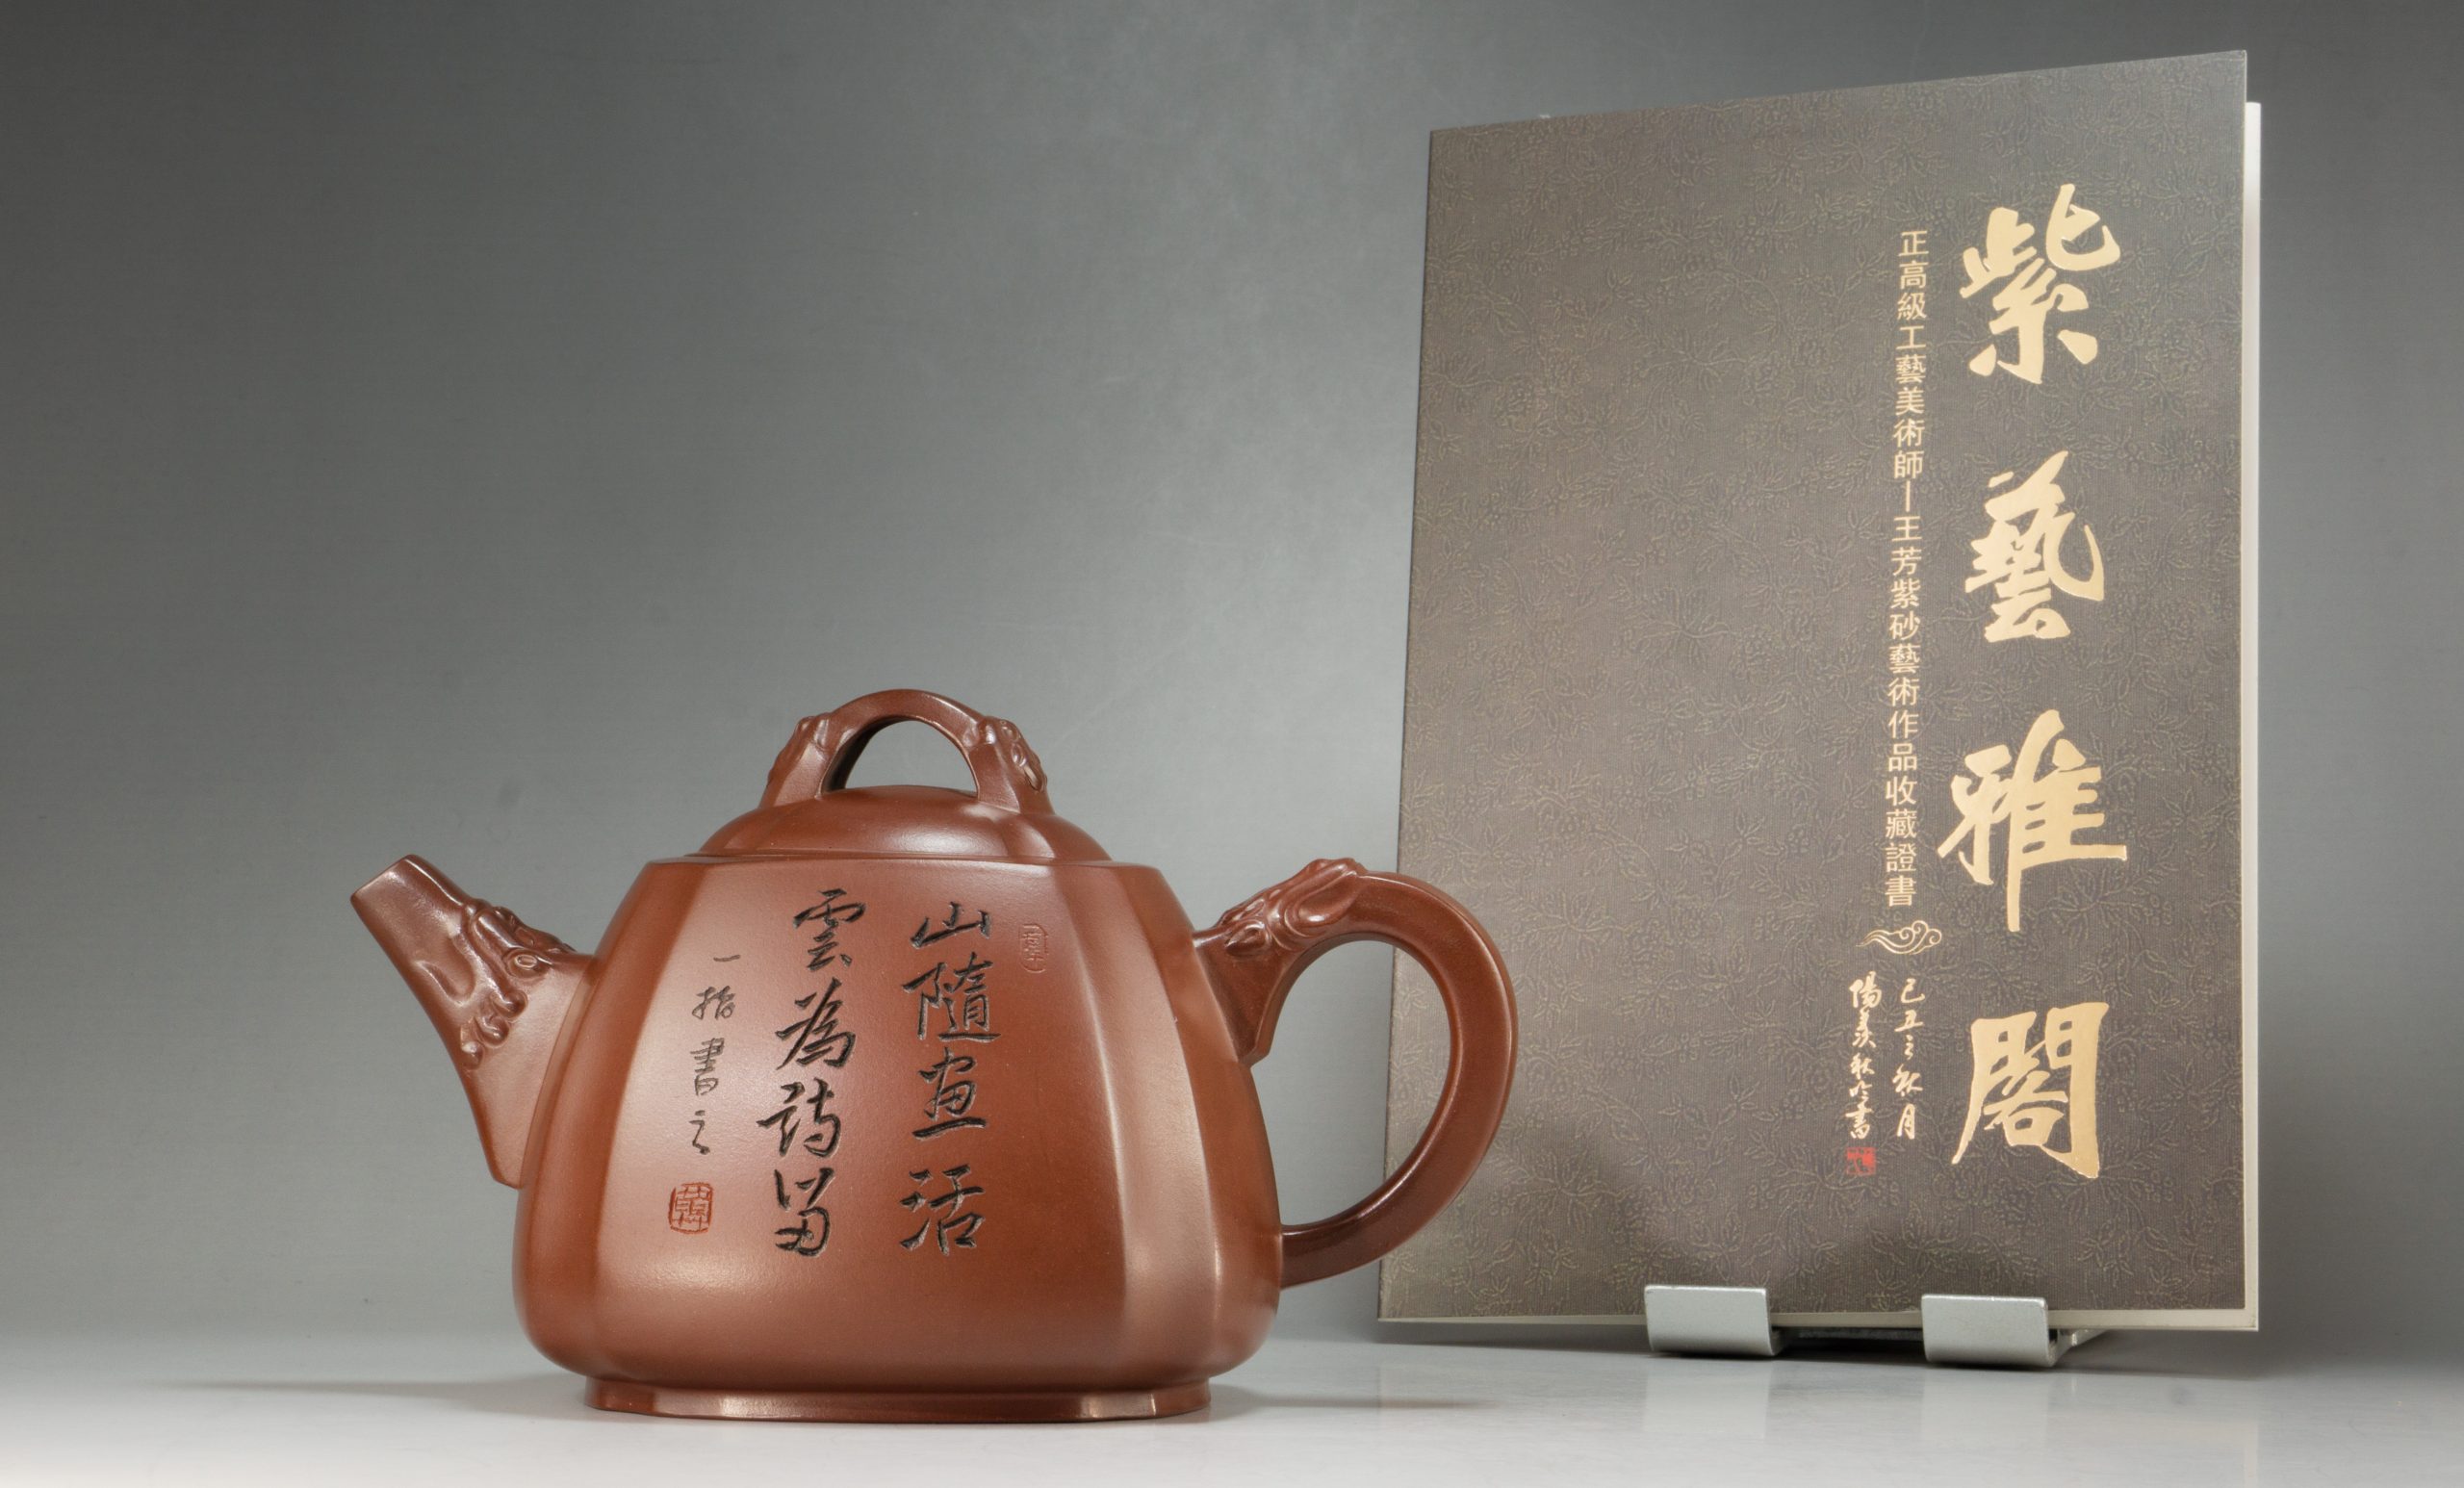 山隨畫活
雲為詩留
一指書之
紫藝雅閣
正高級工藝美術師—王芳紫砂藝術作品收藏證書
己丑之秋月
陽羨秋吟書